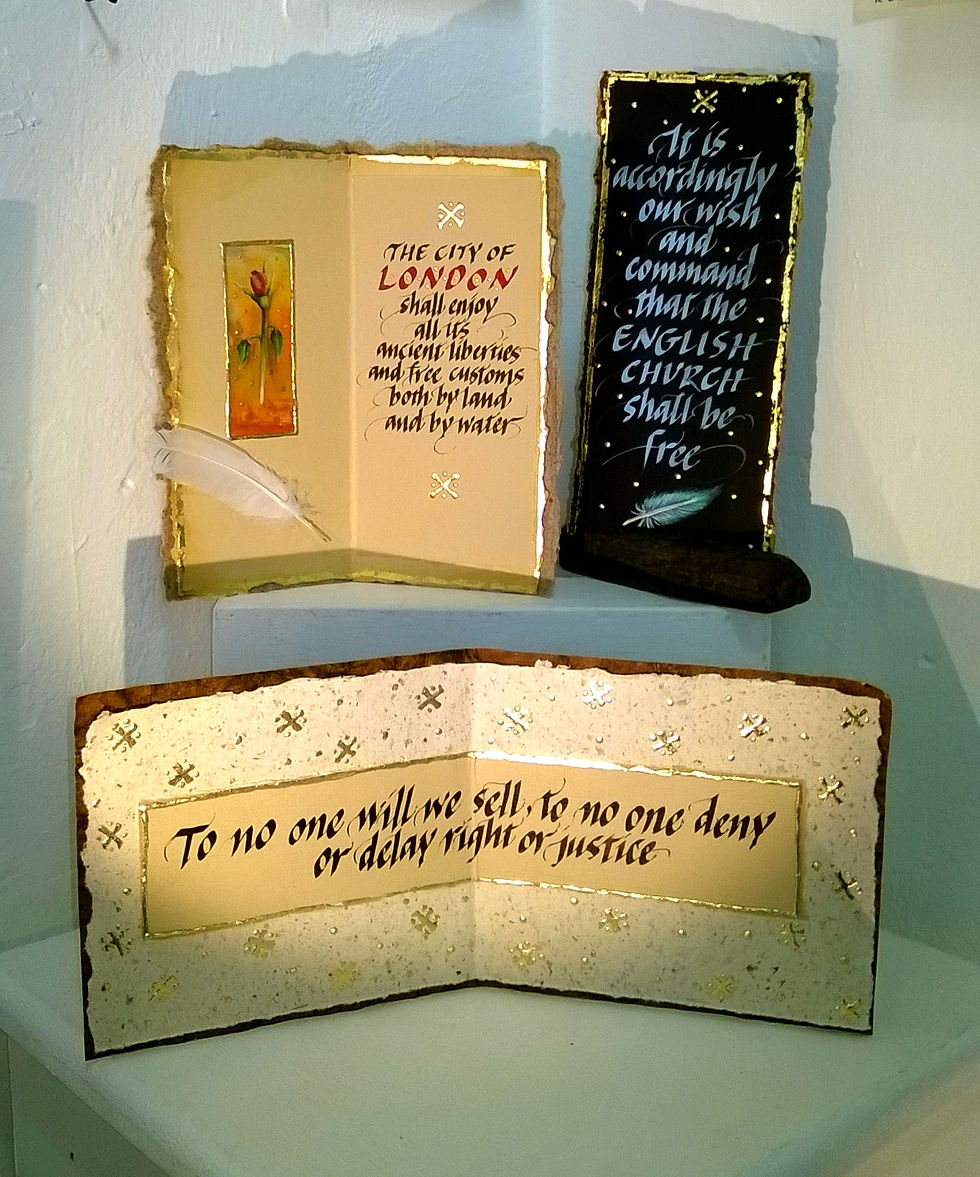 THE CITY OF
LONDON
shall enjoy
all its
ancient liberties
and free customs
both by land
and by water
It is
accordingly
our wish
and
command
that the
ENGLISH
CHURCH
shall be
free
To no one will we sell, to no one deny
or delay right or justice